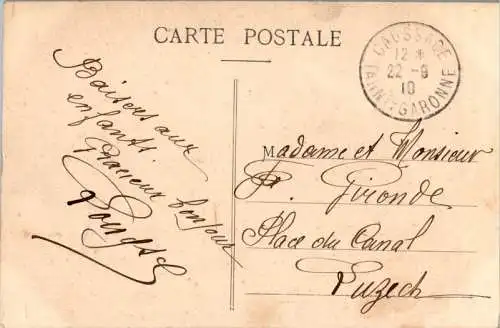 CARTE POSTALE
CAUSSADE
12 *
22 - 9
10
TARN-ET-GARONNE
Baisers aux
enfants
Gracieux bonjour
Madame et Monsieur
Gironde
Place du Canal
Luzech